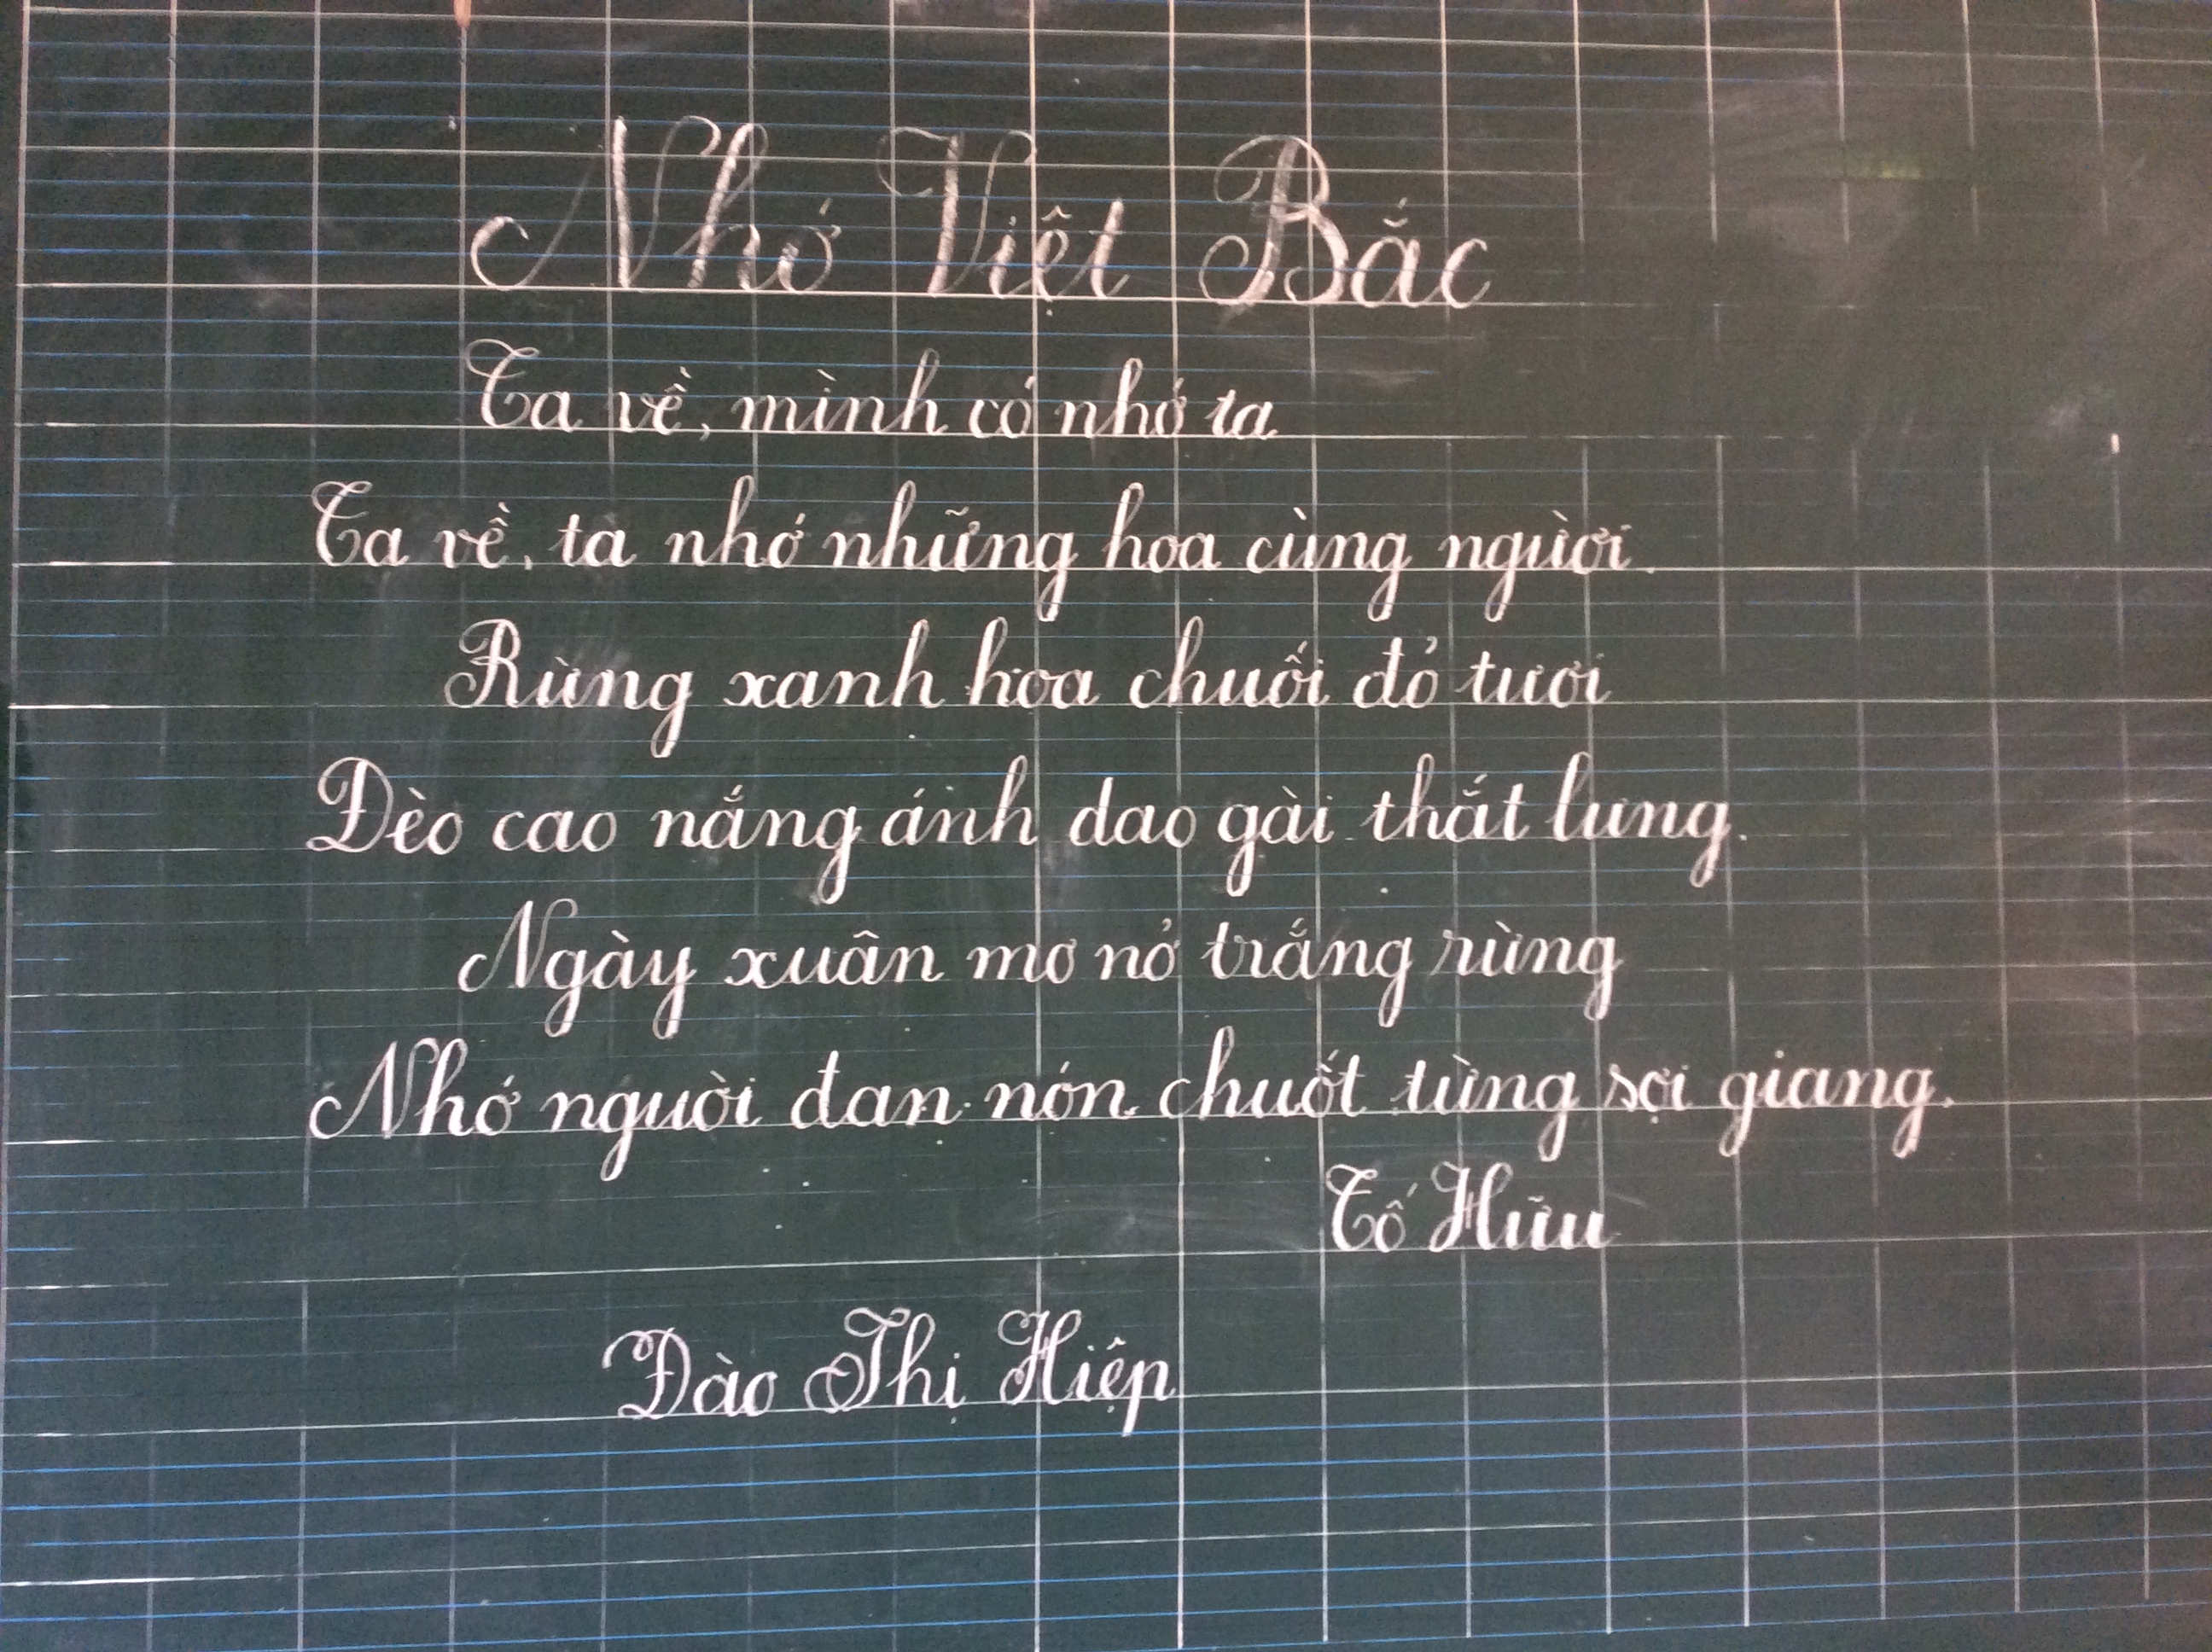 Nhớ Việt Bắc
Ta về, mình có nhớ ta
Ta về, ta nhớ những hoa cùng người.
Rừng xanh hoa chuối đỏ tươi
Đèo cao nắng ánh dao gài thắt lưng.
Ngày xuân mơ nở trắng rừng
Nhớ người đan nón chuốt từng sợi giang.
Tố Hữu
Đào Thị Hiệp